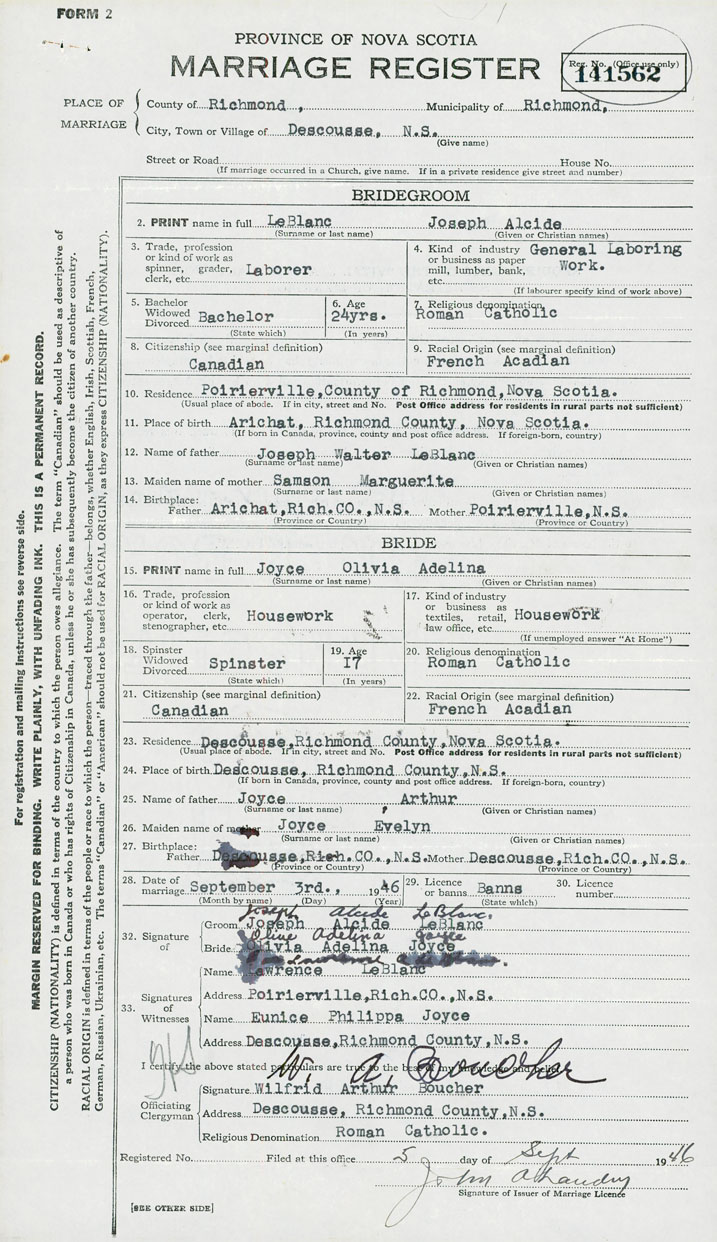 FORM 2
PROVINCE OF NOVA SCOTIA
MARRIAGE REGISTER
Reg. No. (Office use only)
141562
PLACE OF MARRIAGE
County of Richmond , Municipality of Richmond,
City, Town or Village of Descousse, N.S.
(Give name)
Street or Road House No.
(If marriage occurred in a Church, give name. If in a private residence give street and number)
BRIDEGROOM
2. PRINT name in full LeBlanc Joseph Alcide
(Surname or last name) (Given or Christian names)
3. Trade, profession or kind of work as spinner, grader, clerk, etc. Laborer
4. Kind of industry or business as paper mill, lumber, bank, etc. General Laboring Work.
(If labourer specify kind of work above)
5. Bachelor Widowed Divorced Bachelor
(State which)
6. Age 24yrs.
(In years)
7. Religious denomination
Roman Catholic
8. Citizenship (see marginal definition)
Canadian
9. Racial Origin (see marginal definition)
French Acadian
10. Residence Poirierville,County of Richmond,Nova Scotia.
(Usual place of abode. If in city, street and No. Post Office address for residents in rural parts not sufficient)
11. Place of birth Arichat, Richmond County, Nova Scotia.
(If born in Canada, province, county and post office address. If foreign-born, country)
12. Name of father Joseph Walter LeBlanc
(Surname or last name) (Given or Christian names)
13. Maiden name of mother Samson Marguerite
(Surname or last name) (Given or Christian names)
14. Birthplace:
Father Arichat,Rich.CO.,N.S. Mother Poirierville,N.S.
(Province or Country) (Province or Country)
BRIDE
15. PRINT name in full Joyce Olivia Adelina
(Surname or last name) (Given or Christian names)
16. Trade, profession or kind of work as operator, clerk, stenographer, etc. Housework
17. Kind of industry or business as textiles, retail, law office, etc. Housework
(If unemployed answer "At Home")
18. Spinster Widowed Divorced Spinster
(State which)
19. Age I7
(In years)
20. Religious denomination
Roman Catholic
21. Citizenship (see marginal definition)
Canadian
22. Racial Origin (see marginal definition)
French Acadian
23. Residence Descousse,Richmond County,Nova Scotia.
(Usual place of abode. If in city, street and No. Post Office address for residents in rural parts not sufficient)
24. Place of birth Descousse, Richmond County,N.S.
(If born in Canada, province, county and post office address. If foreign-born, country)
25. Name of father Joyce Arthur
(Surname or last name) (Given or Christian names)
26. Maiden name of mother Joyce Evelyn
(Surname or last name) (Given or Christian names)
27. Birthplace:
Father Descousse,Rich.CO.,N.S. Mother Descousse,Rich.CO.,N.S.
(Province or Country) (Province or Country)
28. Date of marriage September 3rd., 1946
(Month by name) (Day) (Year)
29. Licence or banns Banns
(State which)
30. Licence number
32. Signature of
Joseph Alcide LeBlanc.
Groom Joseph Alcide LeBlanc
Olive Adelina Joyce
Bride Olivia Adelina Joyce
33. Signatures of Witnesses
Name Lawrence LeBlanc
Address Poirierville,Rich.CO.,N.S.
Name Eunice Philippa Joyce
Address Descousse,Richmond County,N.S.
I certify the above stated particulars are true to the best of my knowledge and belief
W. A. Boucher
Officiating Clergyman
Signature Wilfrid Arthur Boucher
Address Descousse, Richmond County,N.S.
Religious Denomination Roman Catholic.
Registered No. Filed at this office 5 day of Sept 1946
John A
Signature of Issuer of Marriage Licence
[SEE OTHER SIDE]
For registration and mailing instructions see reverse side.
MARGIN RESERVED FOR BINDING. WRITE PLAINLY, WITH UNFADING INK. THIS IS A PERMANENT RECORD.
CITIZENSHIP (NATIONALITY) is defined in terms of the country to which the person owes allegiance. The term "Canadian" should be used as descriptive of
a person who was born in Canada or who has rights of Citizenship in Canada, unless he or she has subsequently become the citizen of another country.
RACIAL ORIGIN is defined in terms of the people or race to which the person—traced through the father—belongs, whether English, Irish, Scottish, French,
German, Russian, Ukrainian, etc. The terms "Canadian" or "American" should not be used for RACIAL ORIGIN, as they express CITIZENSHIP (NATIONALITY).